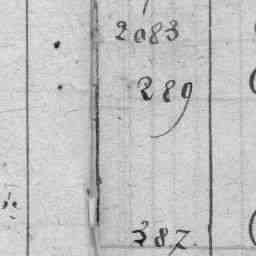 2083
289
387.